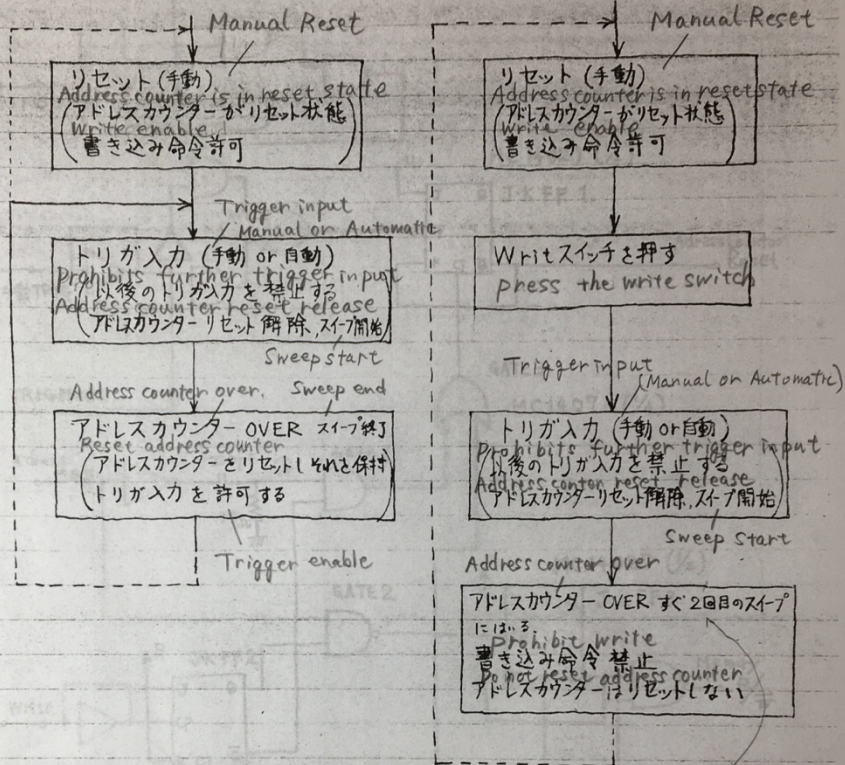 Manual Reset
リセット (手動)
Address counter is in reset state
(アドレスカウンターがリセット状態
Write enable
書き込み命令許可)
Trigger input
Manual or Automatic
トリガ入力 (手動 or 自動)
Prohibits further trigger input
(以後のトリガ入力を禁止する
Address counter reset release
アドレスカウンターリセット解除,スイープ開始)
Sweep start
Address counter over. Sweep end
アドレスカウンター OVER スイープ終了
Reset address counter
(アドレスカウンターをリセットしそれを保持
トリガ入力を許可する)
Trigger enable
Manual Reset
リセット (手動)
Address counter is in reset state
(アドレスカウンターがリセット状態
Write enable
書き込み命令許可)
Writスイッチを押す
press the write switch
Trigger input
(Manual or Automatic)
トリガ入力 (手動 or 自動)
Prohibits further trigger input
(以後のトリガ入力を禁止する
Address conter reset release
アドレスカウンターリセット解除,スイープ開始)
Sweep Start
Address counter over
アドレスカウンター OVER すぐ2回目のスイープ
にはいる
Prohibit write
書き込み命令 禁止
Do not reset address counter
アドレスカウンターはリセットしない
J-KFF1
GATE2